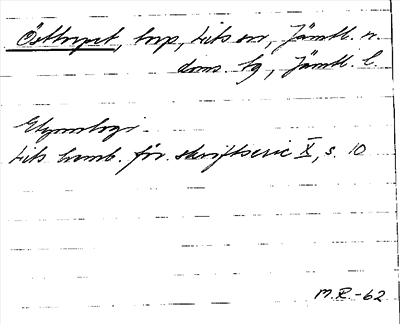 Östtorpet, torp, Lits sn, Jämtl. n.
doms. tg, Jämtl. l.
Etymologi
Lits hemb. för. skriftserie X, s. 10
M.R.-62